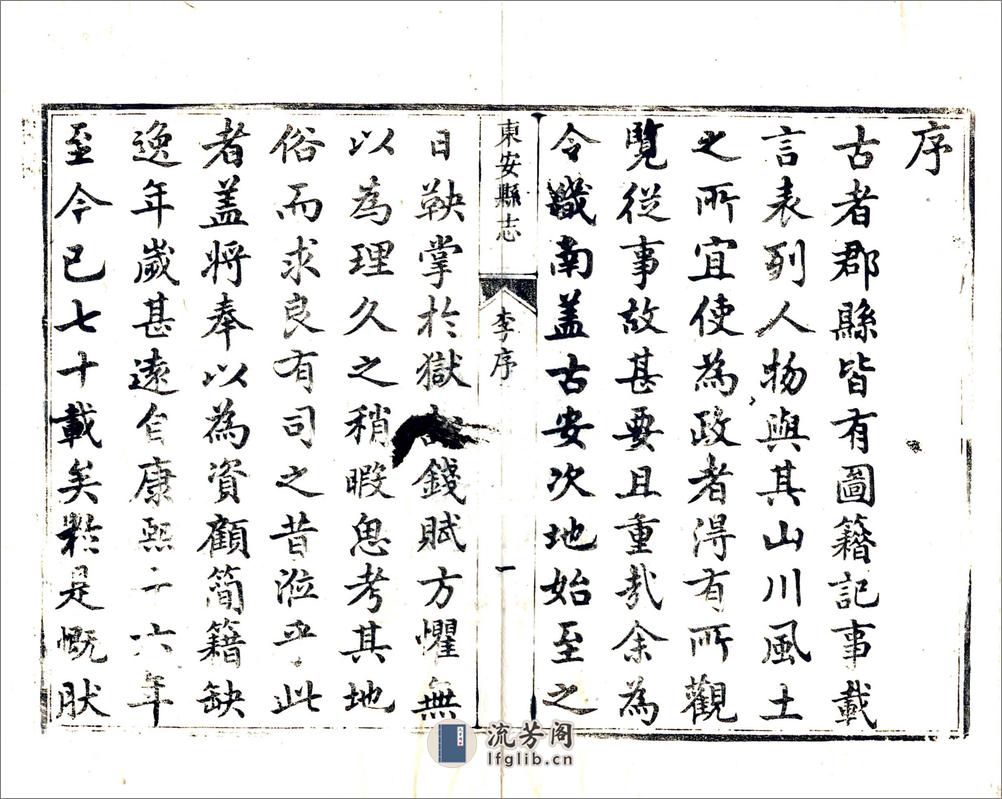 序
古者郡縣皆有圖籍記事載
言表列人物與其山川風土
之所宜使為政者淂有所觀
覽從事故甚要且重㢤余為
令畿南盖古安次地始至之
東安縣志
李序
一
日鞅掌於獄訟錢賦方懼無
以為理久之稍暇思考其地
俗而求良有司之昔涖乎此
者盖将奉以為資顧簡籍缺
逸年歲甚遠自康熙十六年
至今已七十載矣於是慨肰
流芳阁
lfglib.cn